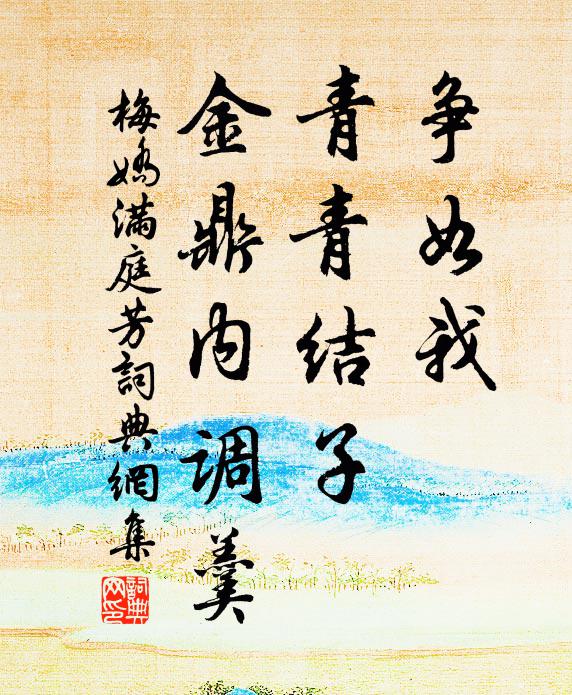 争如我
青青结子
金鼎内调羹
梅嬌滿庭芳詞典網集
詞典
网印